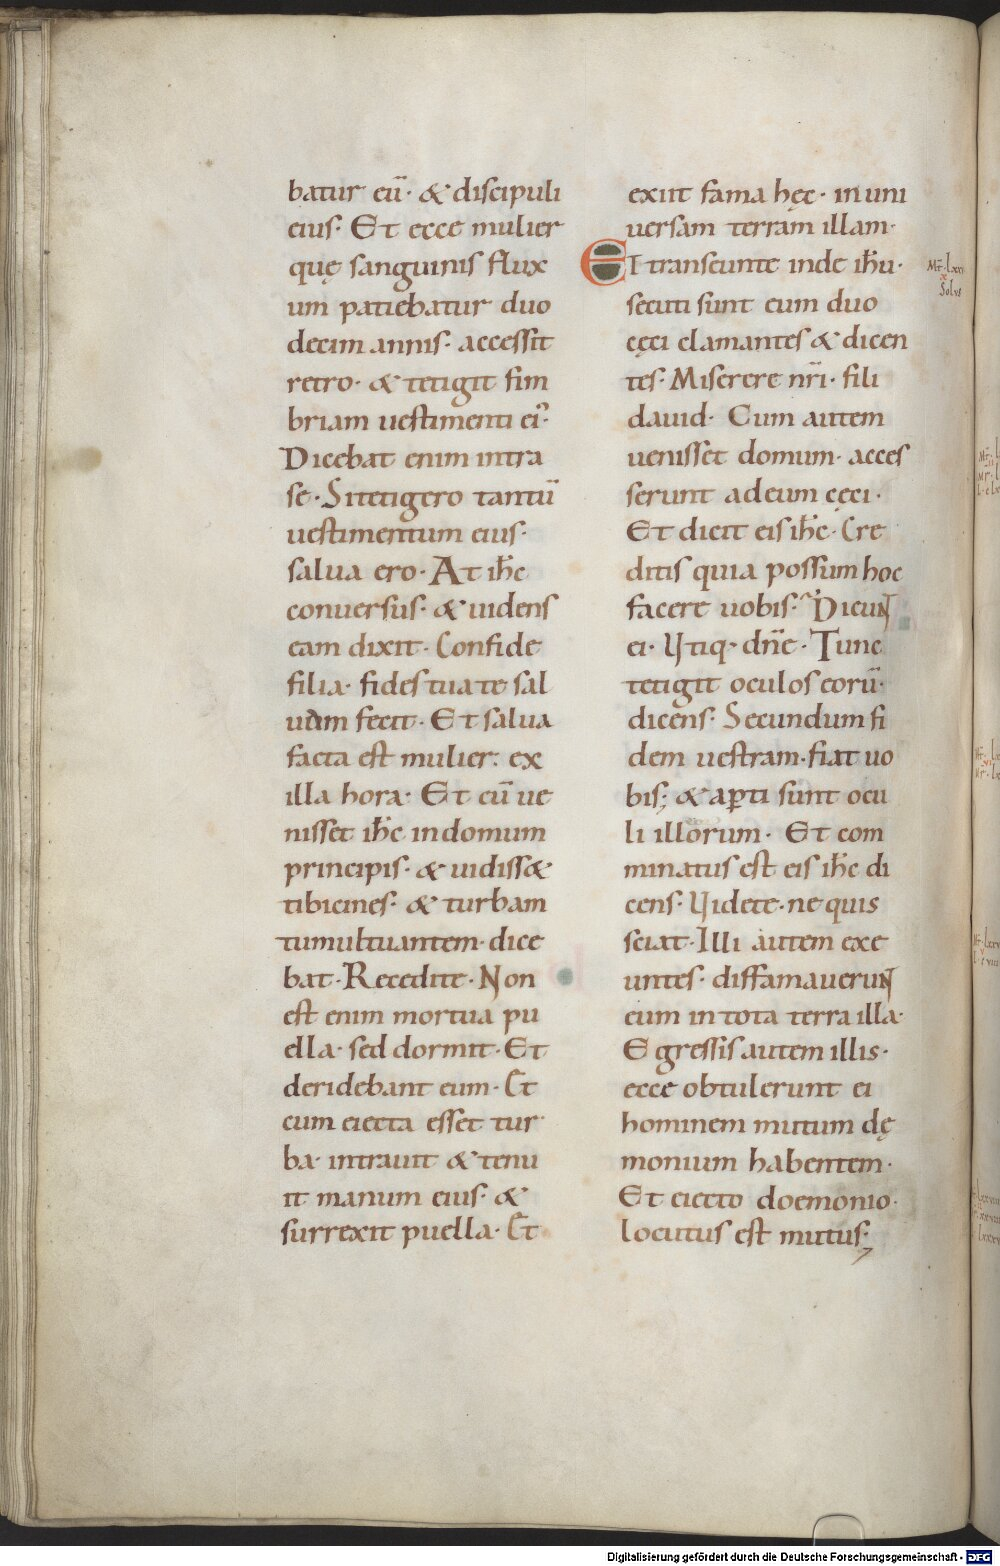 batur eū· & discipuli
eius· Et ecce mulier
quę sanguinis flux
um patiebatur duo
decim annis· accessit
retro· & tetigit fim
briam uestimenti ei᾽·
Dicebat enim intra
se· Si tetigero tantū
uestimentum eius·
salua ero· At ih̄c
conuersus· & uidens
eam dixit· Confide
filia· fides tua te sal
uam fecit· Et salua
facta est mulier· ex
illa hora· Et cū ue
nisset ih̄c in domum
principis· & uidiss&
tibicines· & turbam
tumultuantem· dice
bat· Recedite· Non
est enim mortua pu
ella· sed dormit· Et
deridebant eum· Et
cum eiecta esset tur
ba· intrauit & tenu
it manum eius· &
surrexit puella· Et
exiit fama hęc· in uni
uersam terram illam·
ET transeunte inde ih̄u·
secuti sunt eum duo
cęci clamantes & dicen
tes· Miserere nr̄i· fili
dauid· Cum autem
uenisset domum· acces
serunt ad eum cęci·
Et dicit eis ih̄c· Cre
ditis quia possum hoc
facere uobis· Dicunt
ei· Utiq· dn̄e· Tunc
tetigit oculos eorū·
dicens· Secundum fi
dem uestram· fiat uo
bis; & aꝑti sunt ocu
li illorum· Et com
minatus est eis ih̄c di
cens· Uidete· ne quis
sciat· Illi autem exe
untes· diffamauerunt
eum in tota terra illa·
Egressis autem illis·
ecce obtulerunt ei
hominem mutum dę
monium habentem·
Et eiecto doemonio·
locutus est mutus;
Solus
Digitalisierung gefördert durch die Deutsche Forschungsgemeinschaft - DFG